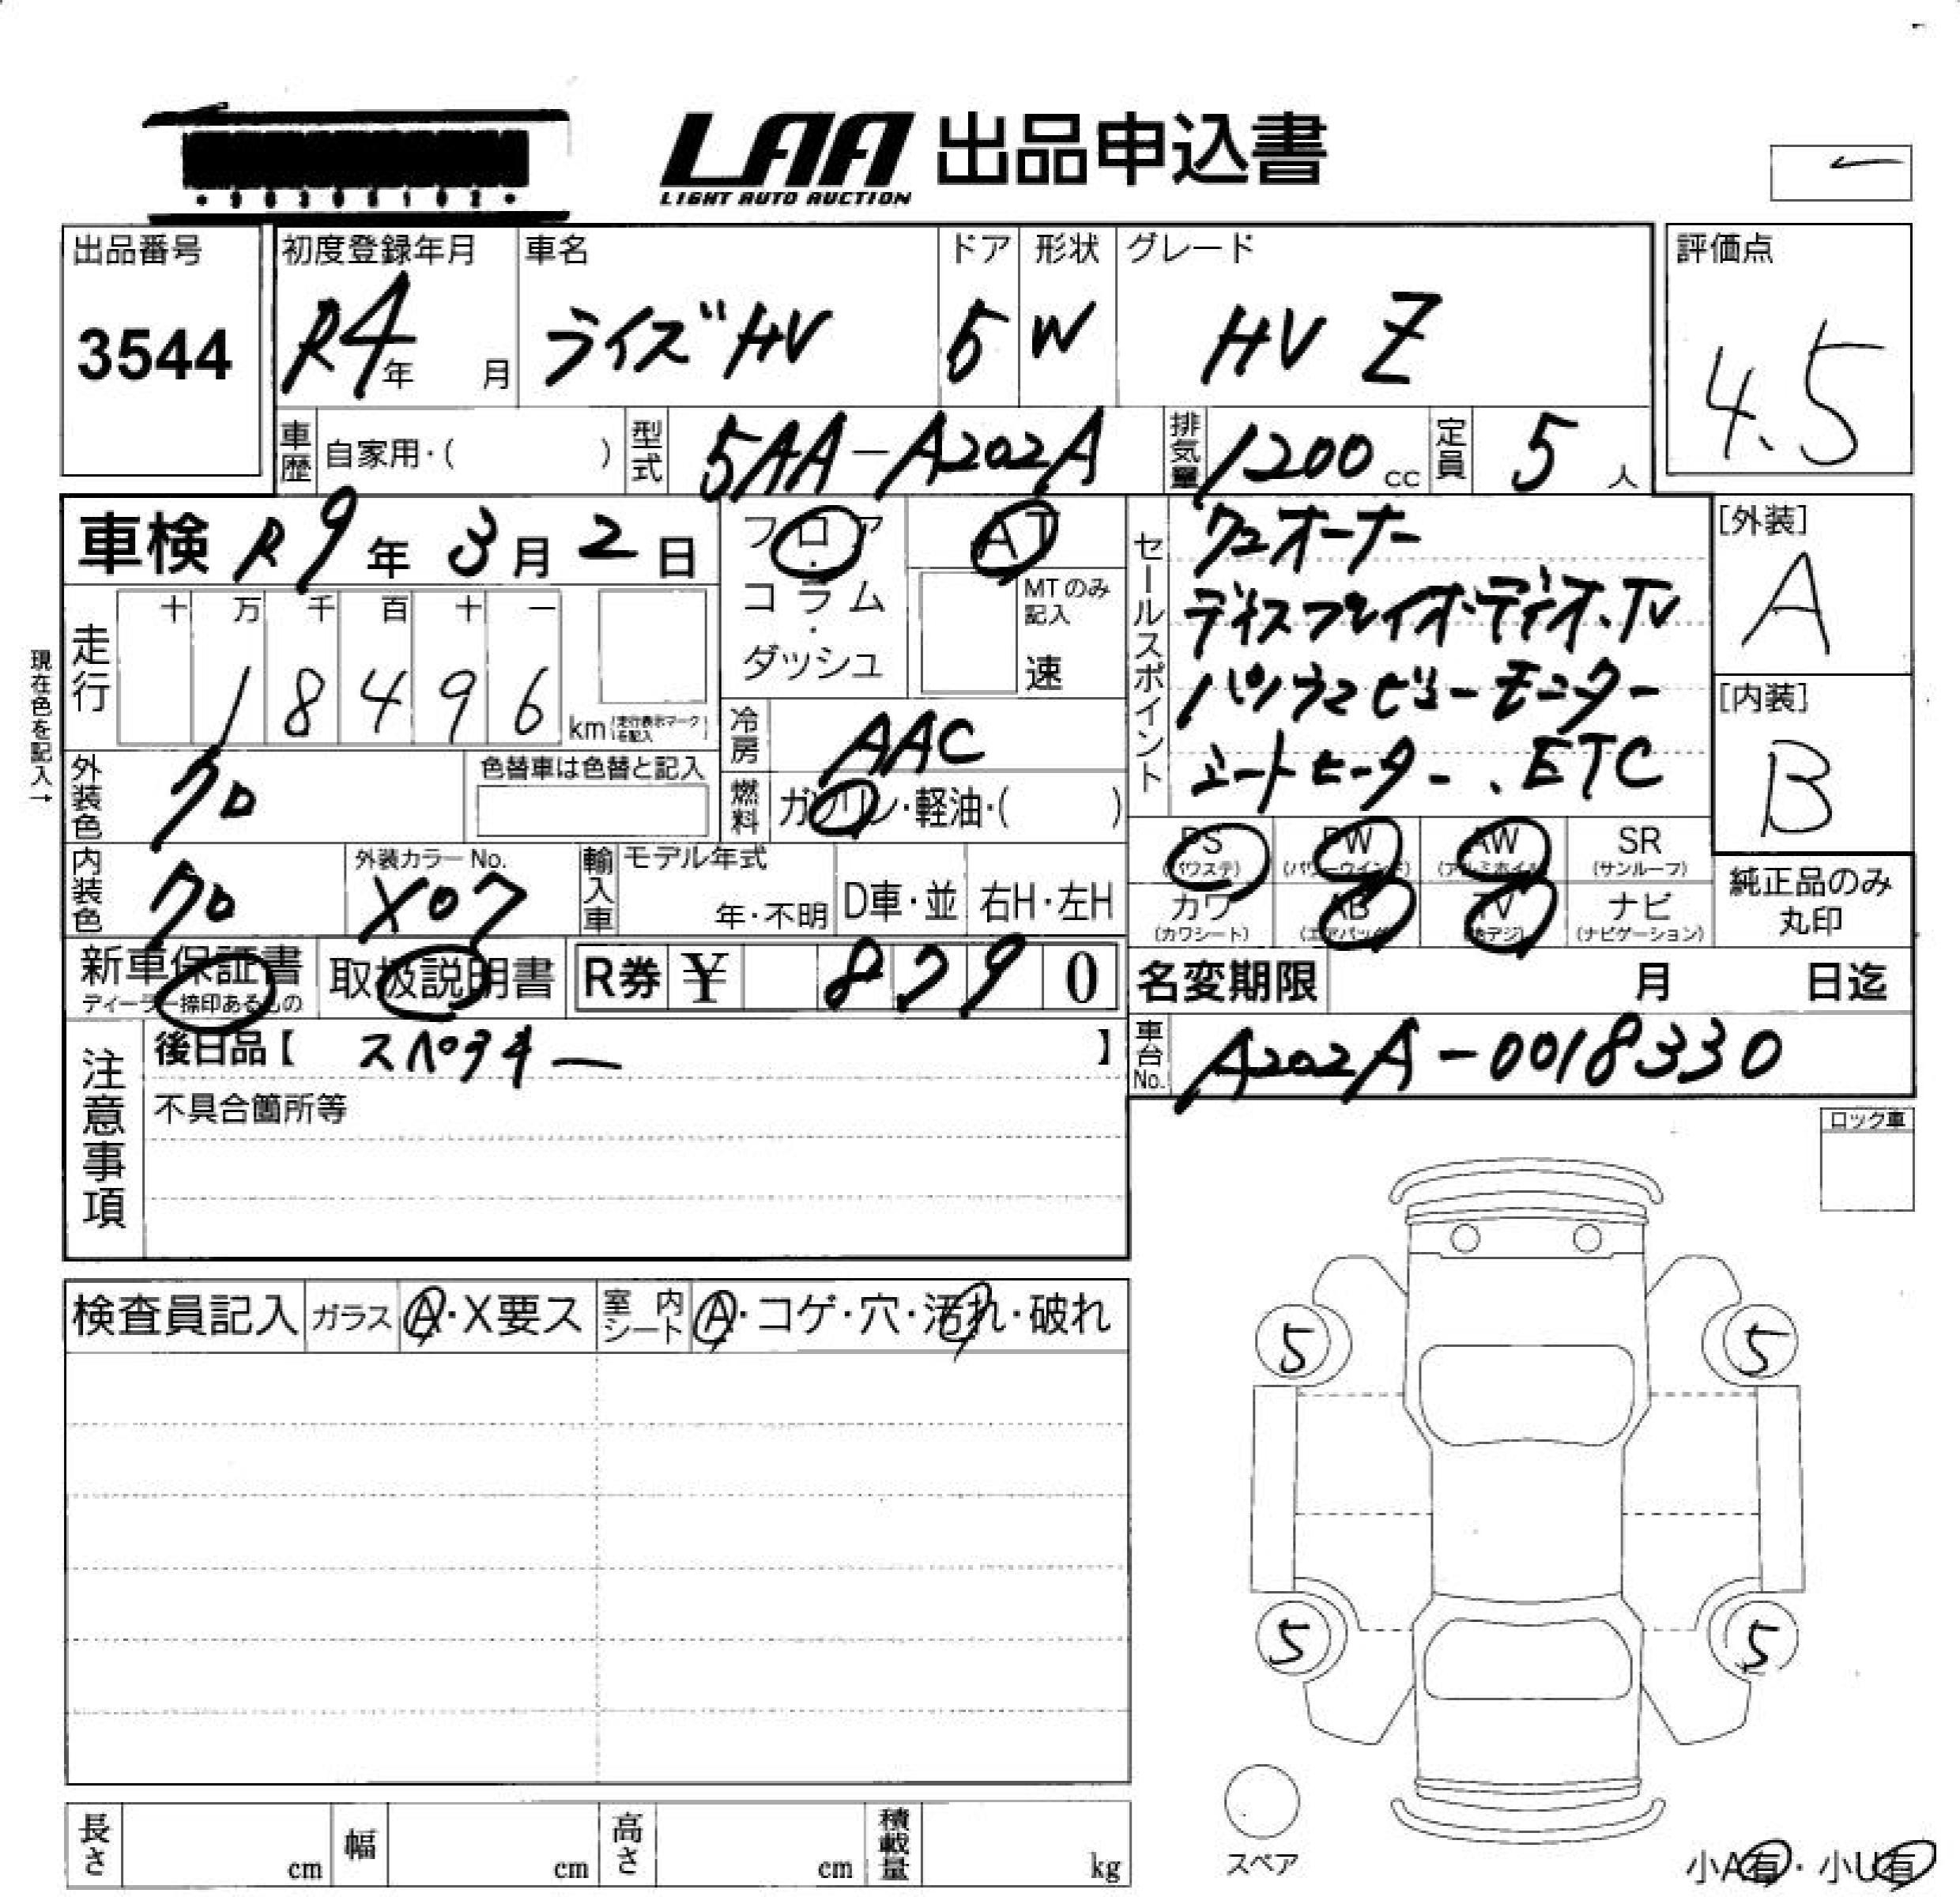 LAA 出品申込書
LIGHT AUTO AUCTION
出品番号
3544
初度登録年月
R4年 月
車名
ライズHV
ドア
5
形状
W
グレード
HV Z
評価点
4.5
車歴 自家用・( )
型式 5AA-A202A
排気量 1200cc
定員 5人
車検 R9年3月2日
フロア・コラム・ダッシュ
AT
MTのみ記入
速
セールスポイント
ワンオーナー
ディスプレイオーディオ、TV
パノラマビューモニター
シートヒーター、ETC
[外装]
A
[内装]
B
現在色を記入→
走行
十 万 千 百 十 一
18496
km(走行表示マークを記入)
冷房 AAC
燃料 ガソリン・軽油・( )
外装色 クロ
色替車は色替と記入
内装色 クロ
外装カラーNo.
X07
輸入車
モデル年式
年・不明
D車・並
右H・左H
PS (パワステ)
PW (パワーウインド)
AW (アルミホイル)
SR (サンルーフ)
カワ (カワシート)
AB (エアバッグ)
TV (地デジ)
ナビ (ナビゲーション)
純正品のみ丸印
新車保証書
ディーラー捺印あるもの
取扱説明書
R券 ¥ 8790
名変期限 月 日迄
車台No. A202A-0018330
注意事項
後日品【 スペアキー 】
不具合箇所等
ロック車
検査員記入
ガラス A・X要ス
室内シート A・コゲ・穴・汚れ・破れ
5
5
5
5
スペア
長さ cm
幅 cm
高さ cm
積載量 kg
小A有・小U有